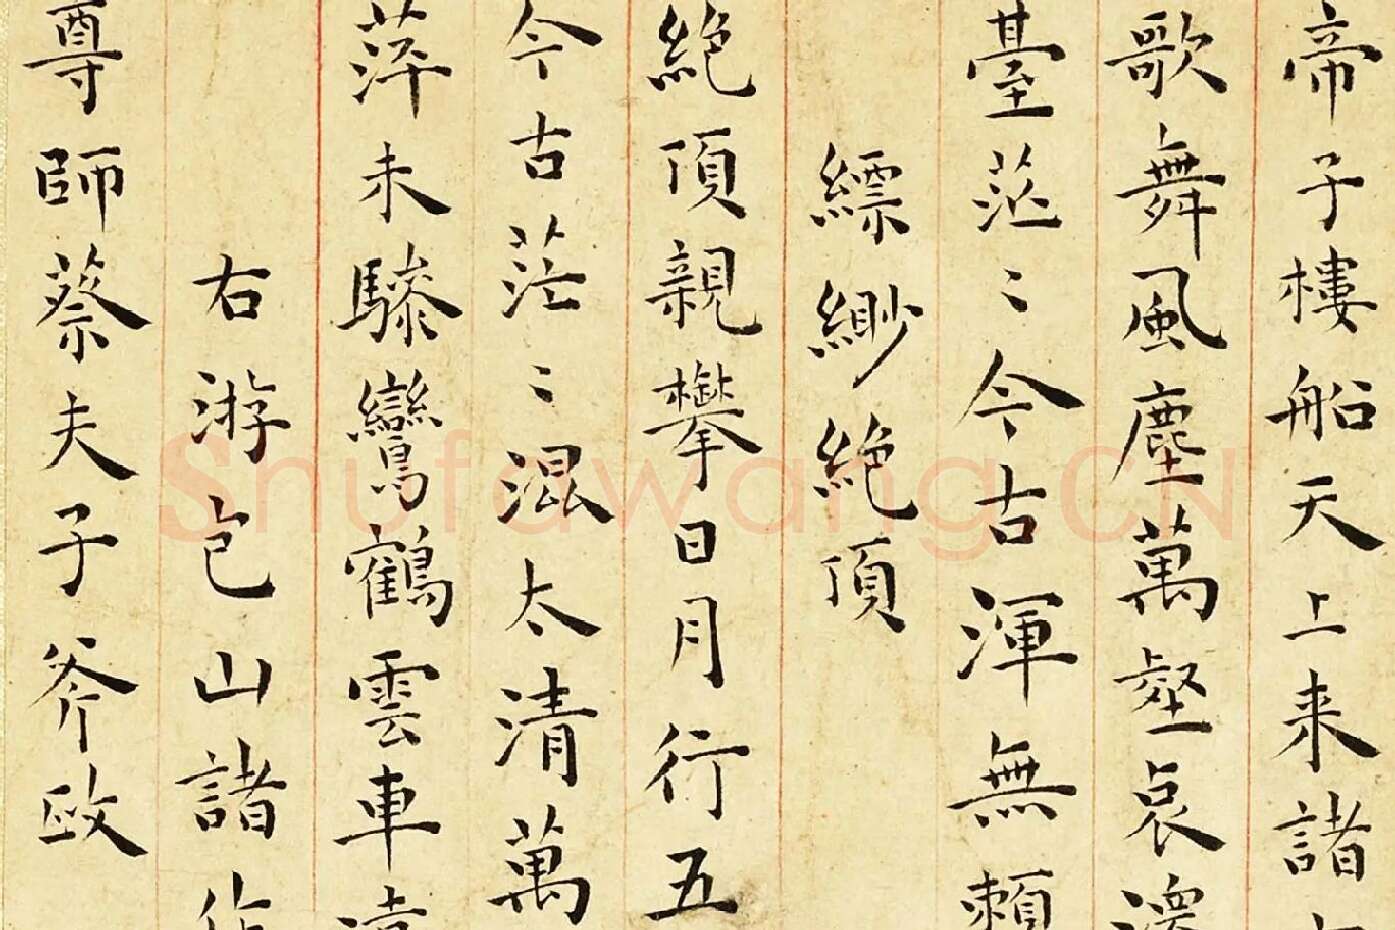 帝子樓船天上来諸
歌舞風塵萬壑哀
臺茫〻今古渾無賴
縹緲絕頂
絕頂親攀日月行五
今古茫〻混太清萬
萍未驂鸞鶴雲車
右游包山諸作
尊師蔡夫子斧政
Shufawang.CN